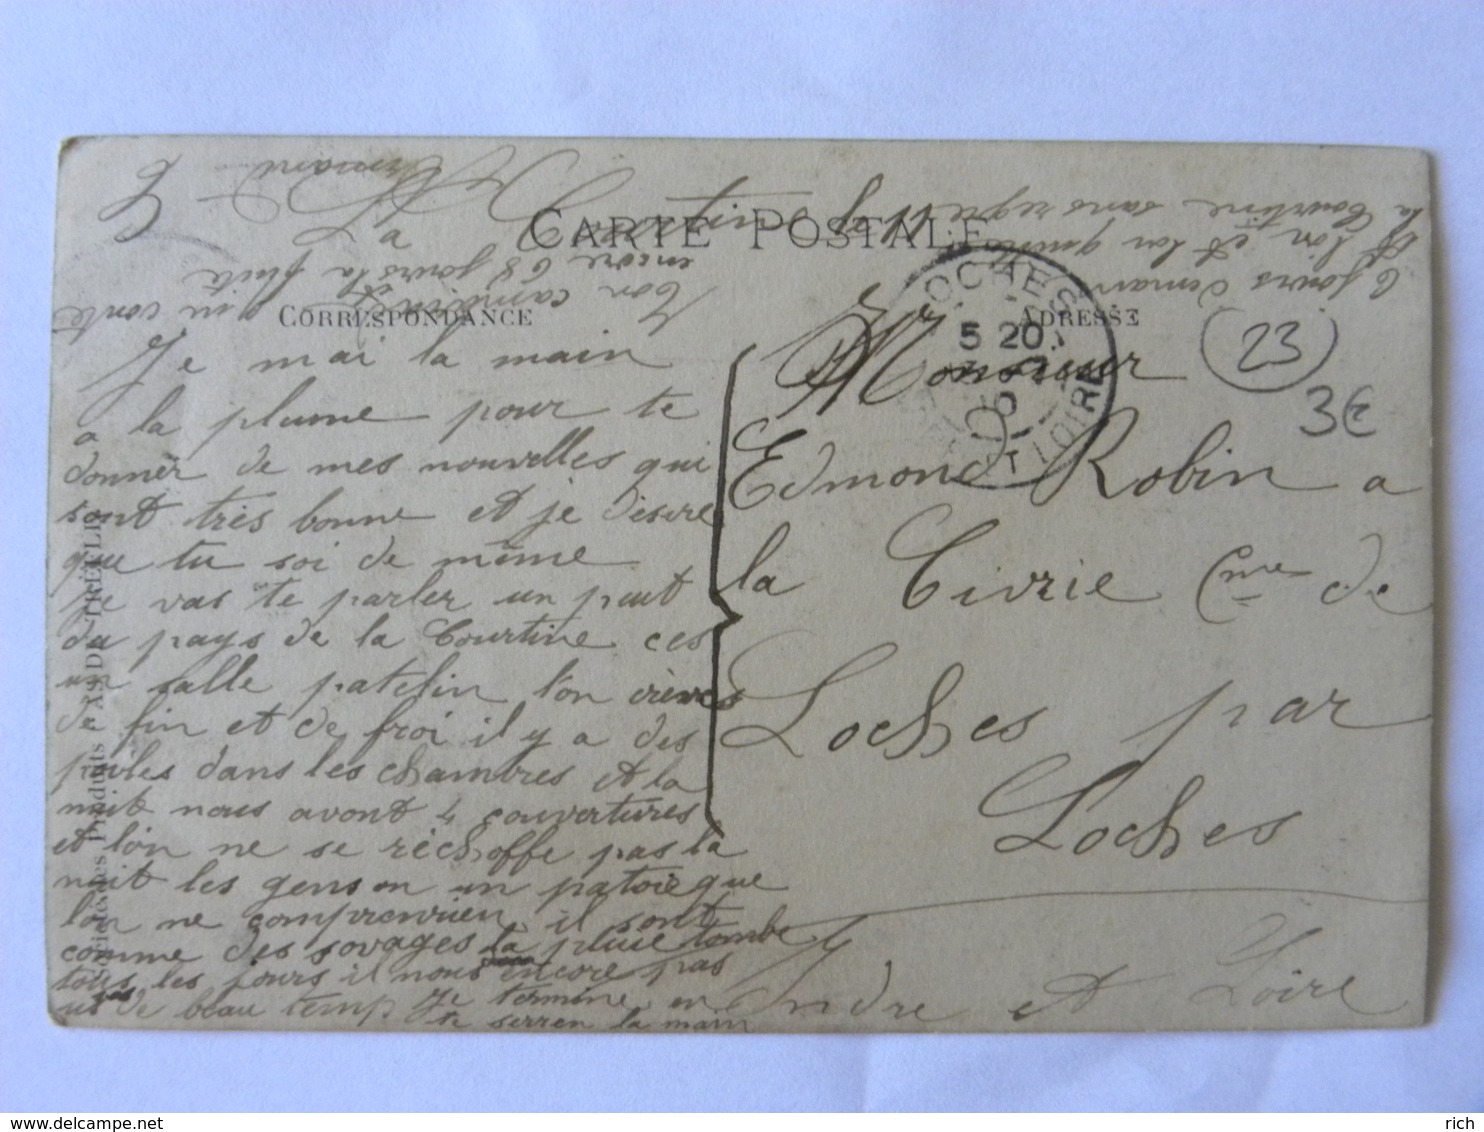 CARTE POSTALE
CORRESPONDANCE
ADRESSE
Je mai la main
a la plume pour te
donner de mes nouvelles qui
sont très bonne et je désire
que tu soi de même
je vas te parler un peut
du pays de la Courtine ces
un salle patelin l'on crève
de fin et de froi il y a des
puiles dans les chambres et la
nuit nous avont 4 couvertures
et l'on ne se réchoffe pas la
nuit les gens on un patoie que
l'on ne comprenrien il sont
comme des sovages la pluie tombe
tous les jours il nous encore pas
de beau temp Je termine en
te serren la main
Ton camarade
encore 68 jours la fuite
La Courtine
Armand
6 jours demain
l'on et l'on quitte
la Courtine sans regret
LOCHES
5 20
INDRE ET LOIRE
Monsieur
Edmond Robin a
la Civrie Cme de
Loches par
Loches
Indre et Loire
23
3€
rich